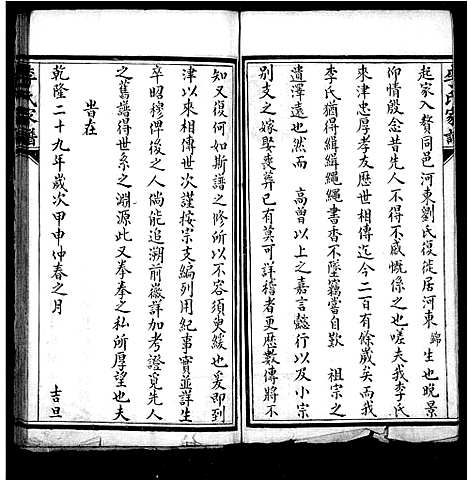 起家入贅同邑河東劉氏復徙居河東錦生也晚景
仰情殷念昔先人不得不感慨係之也嗟夫我李氏
來津忠厚孝友歷世相傳迄今二百有餘歲矣而我
李氏猶得緝緝繩繩書香不墜竊嘗自歎祖宗之
遺澤遠也然而高曾以上之嘉言懿行以及小宗
別支之嫁娶喪葬已有莫可詳稽者更歷數傳將不
知又復何如斯譜之修所以不容須臾緩也爰即到
津以來相傳世次謹按宗支編列用紀事實並詳生
卒昭穆俾後之人倘能追溯前徽詳加考證覓先人
之舊譜得世系之淵源此又拳拳之私所厚望也夫
旹在
乾隆二十九年歲次甲申仲春之月 吉旦
李氏家譜